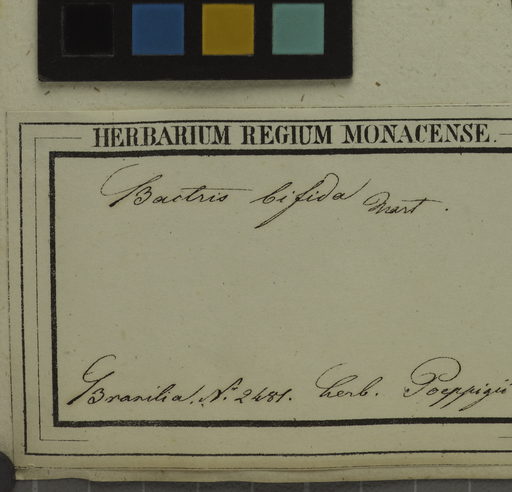 HERBARIUM REGIUM MONACENSE.
Bactris bifida Mart.
Brasilia. N. 2481. herb. Poeppigii